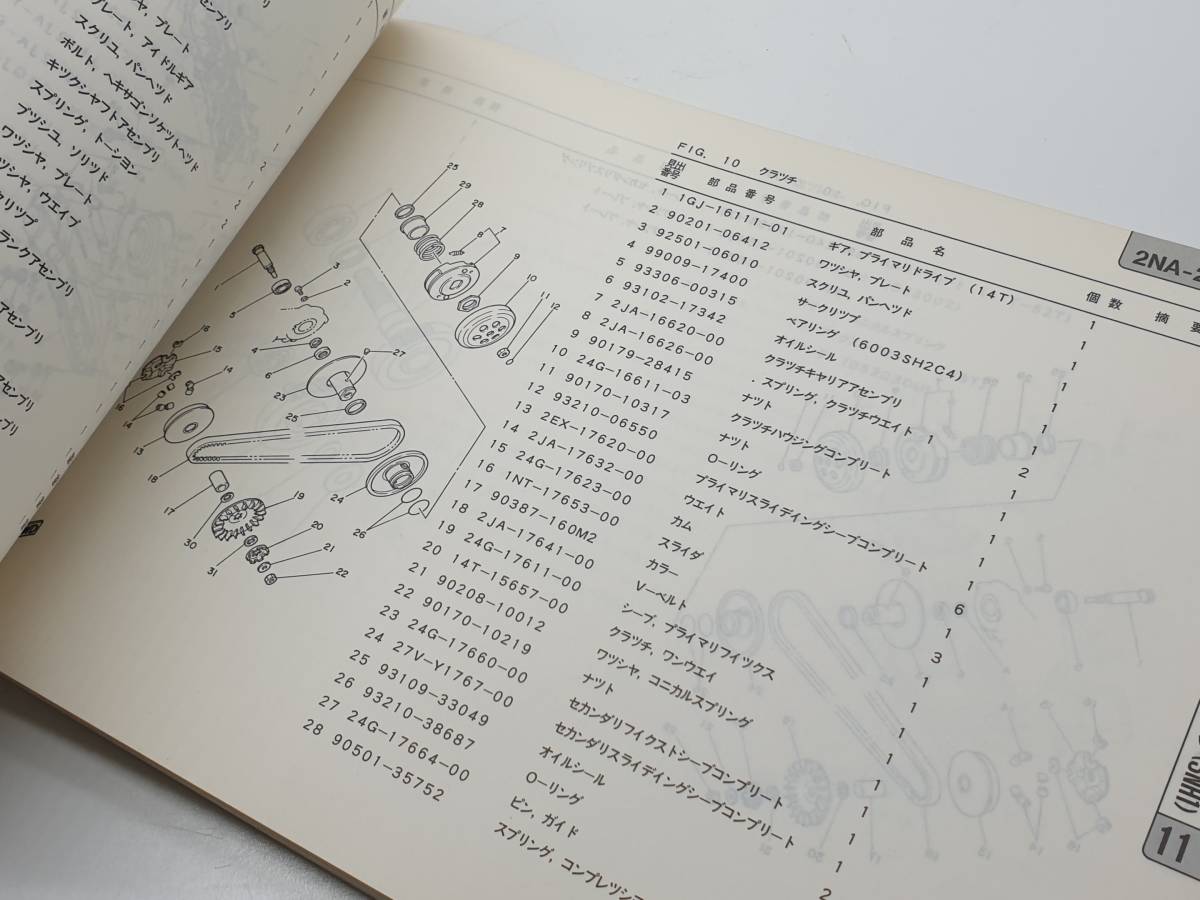 ヤ, プレート
レート, アイドルギア
スクリユ, パンヘツド
ボルト, ヘキサゴンソケツトヘツド
キツクシヤフトアセンブリ
スプリング, トーシヨン
ブツシユ, ソリツド
ワツシヤ, プレート
ツシヤ, ウエイブ
クリツプ
ランクアセンブリ
アセンブリ
アセンブリ
FIG. 10 クラツチ
見出番号 部品番号 部品名 個数 摘要
1 1GJ-16111-01 ギア, プライマリドライブ (14T) 1
2 90201-06412 ワツシヤ, プレート 1
3 92501-06010 スクリユ, パンヘツド 1
4 99009-17400 サークリツプ 1
5 93306-00315 ベアリング (6003SH2C4) 1
6 93102-17342 オイルシール 1
7 2JA-16620-00 クラツチキヤリアアセンブリ 1
8 2JA-16626-00 . スプリング, クラツチウエイト 1
9 90179-28415 ナツト
10 24G-16611-03 クラツチハウジングコンプリート
11 90170-10317 ナツト
12 93210-06550 O-リング
13 2EX-17620-00 プライマリスライデイングシーブコンプリート
14 2JA-17632-00 ウエイト
15 24G-17623-00 カム
16 1NT-17653-00 スライダ
17 90387-160M2 カラー
18 2JA-17641-00 V-ベルト
19 24G-17611-00 シーブ, プライマリフイツクス
20 14T-15657-00 クラツチ, ワンウエイ
21 90208-10012 ワツシヤ, コニカルスプリング
22 90170-10219 ナツト
23 24G-17660-00 セカンダリフイクストシーブコンプリート
24 27V-Y1767-00 セカンダリスライデイングシーブコンプリート
25 93109-33049 オイルシール
26 93210-38687 O-リング
27 24G-17664-00 ピン, ガイド
28 90501-35752 スプリング, コンプレツシ
2NA-2
(1HNS)
11